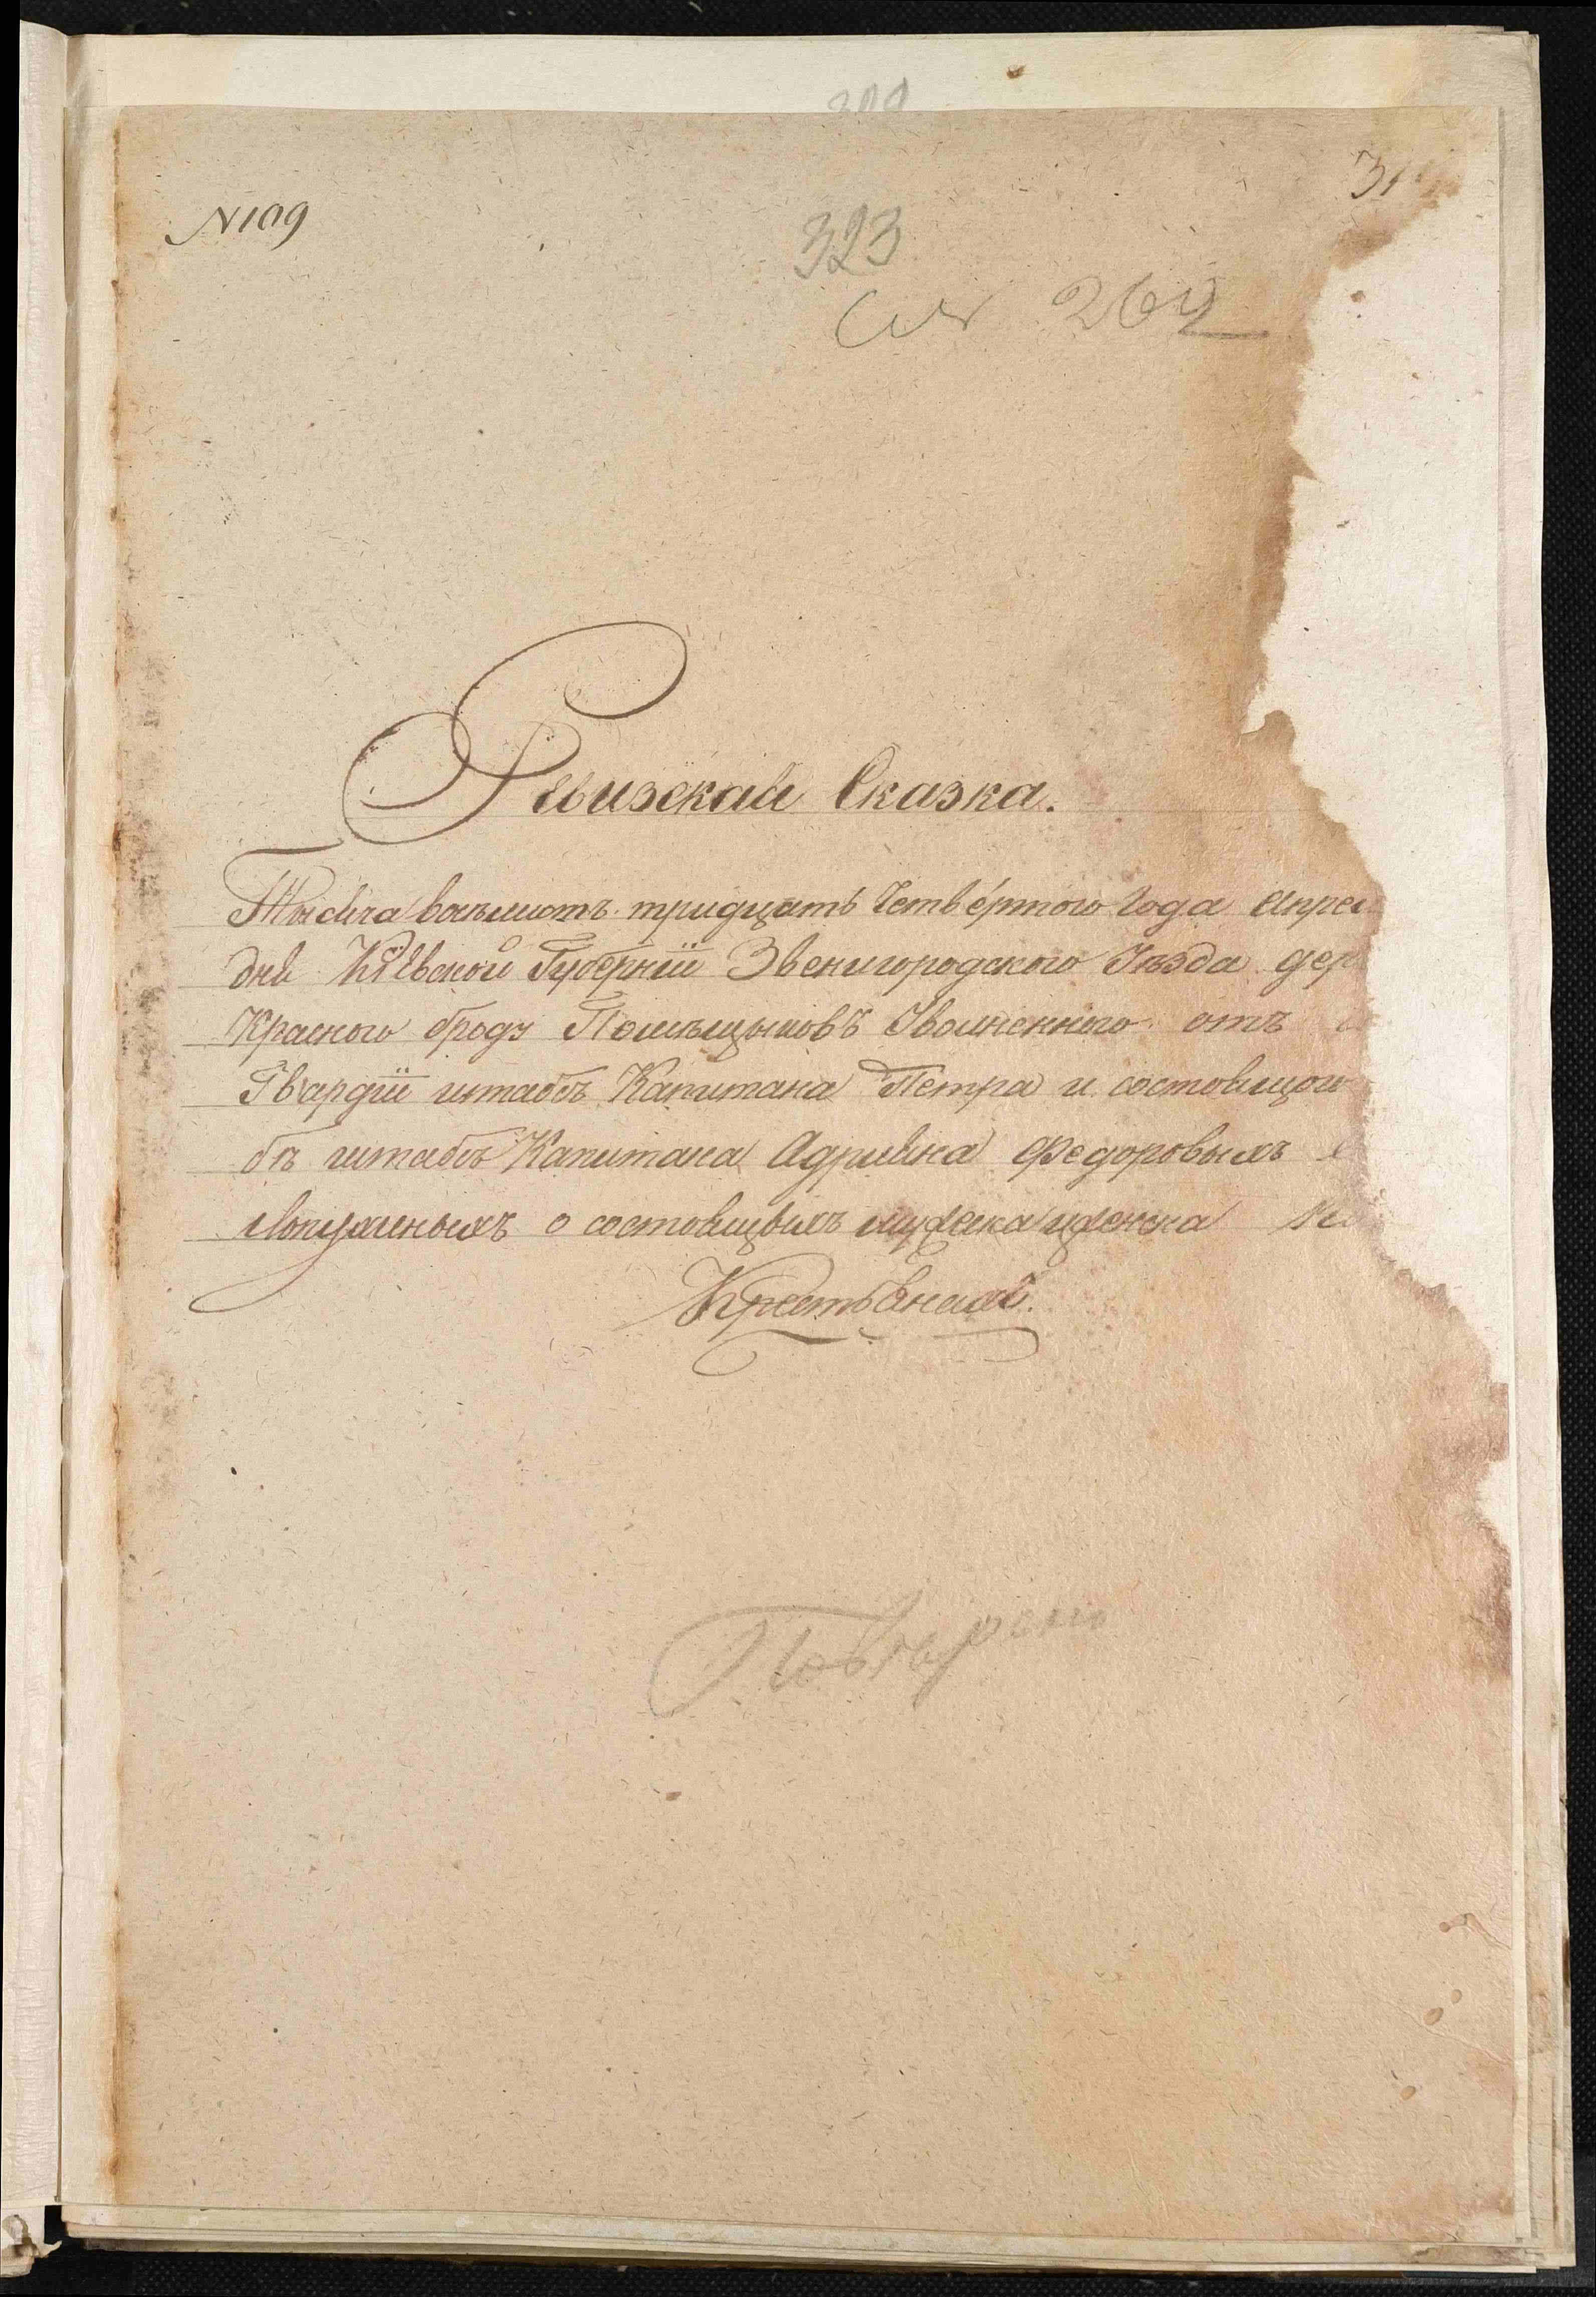 N109
323
264
Ревизская Сказка.
Тысяча восемьсотъ тридцать Четвертого Года Апрел
дня Кіевской Губерніи Звенигородского Уѣзда дер
Красного броду Помѣщыковъ Уволненного отъ
Гвардіи штабъ Капитана Петра и состоящого
бъ штабъ Капитана Адріяна Федоровыхъ
Лопухиныхъ о состоящыхъ мужеска и женска
Крестьянахъ.
Повѣрено